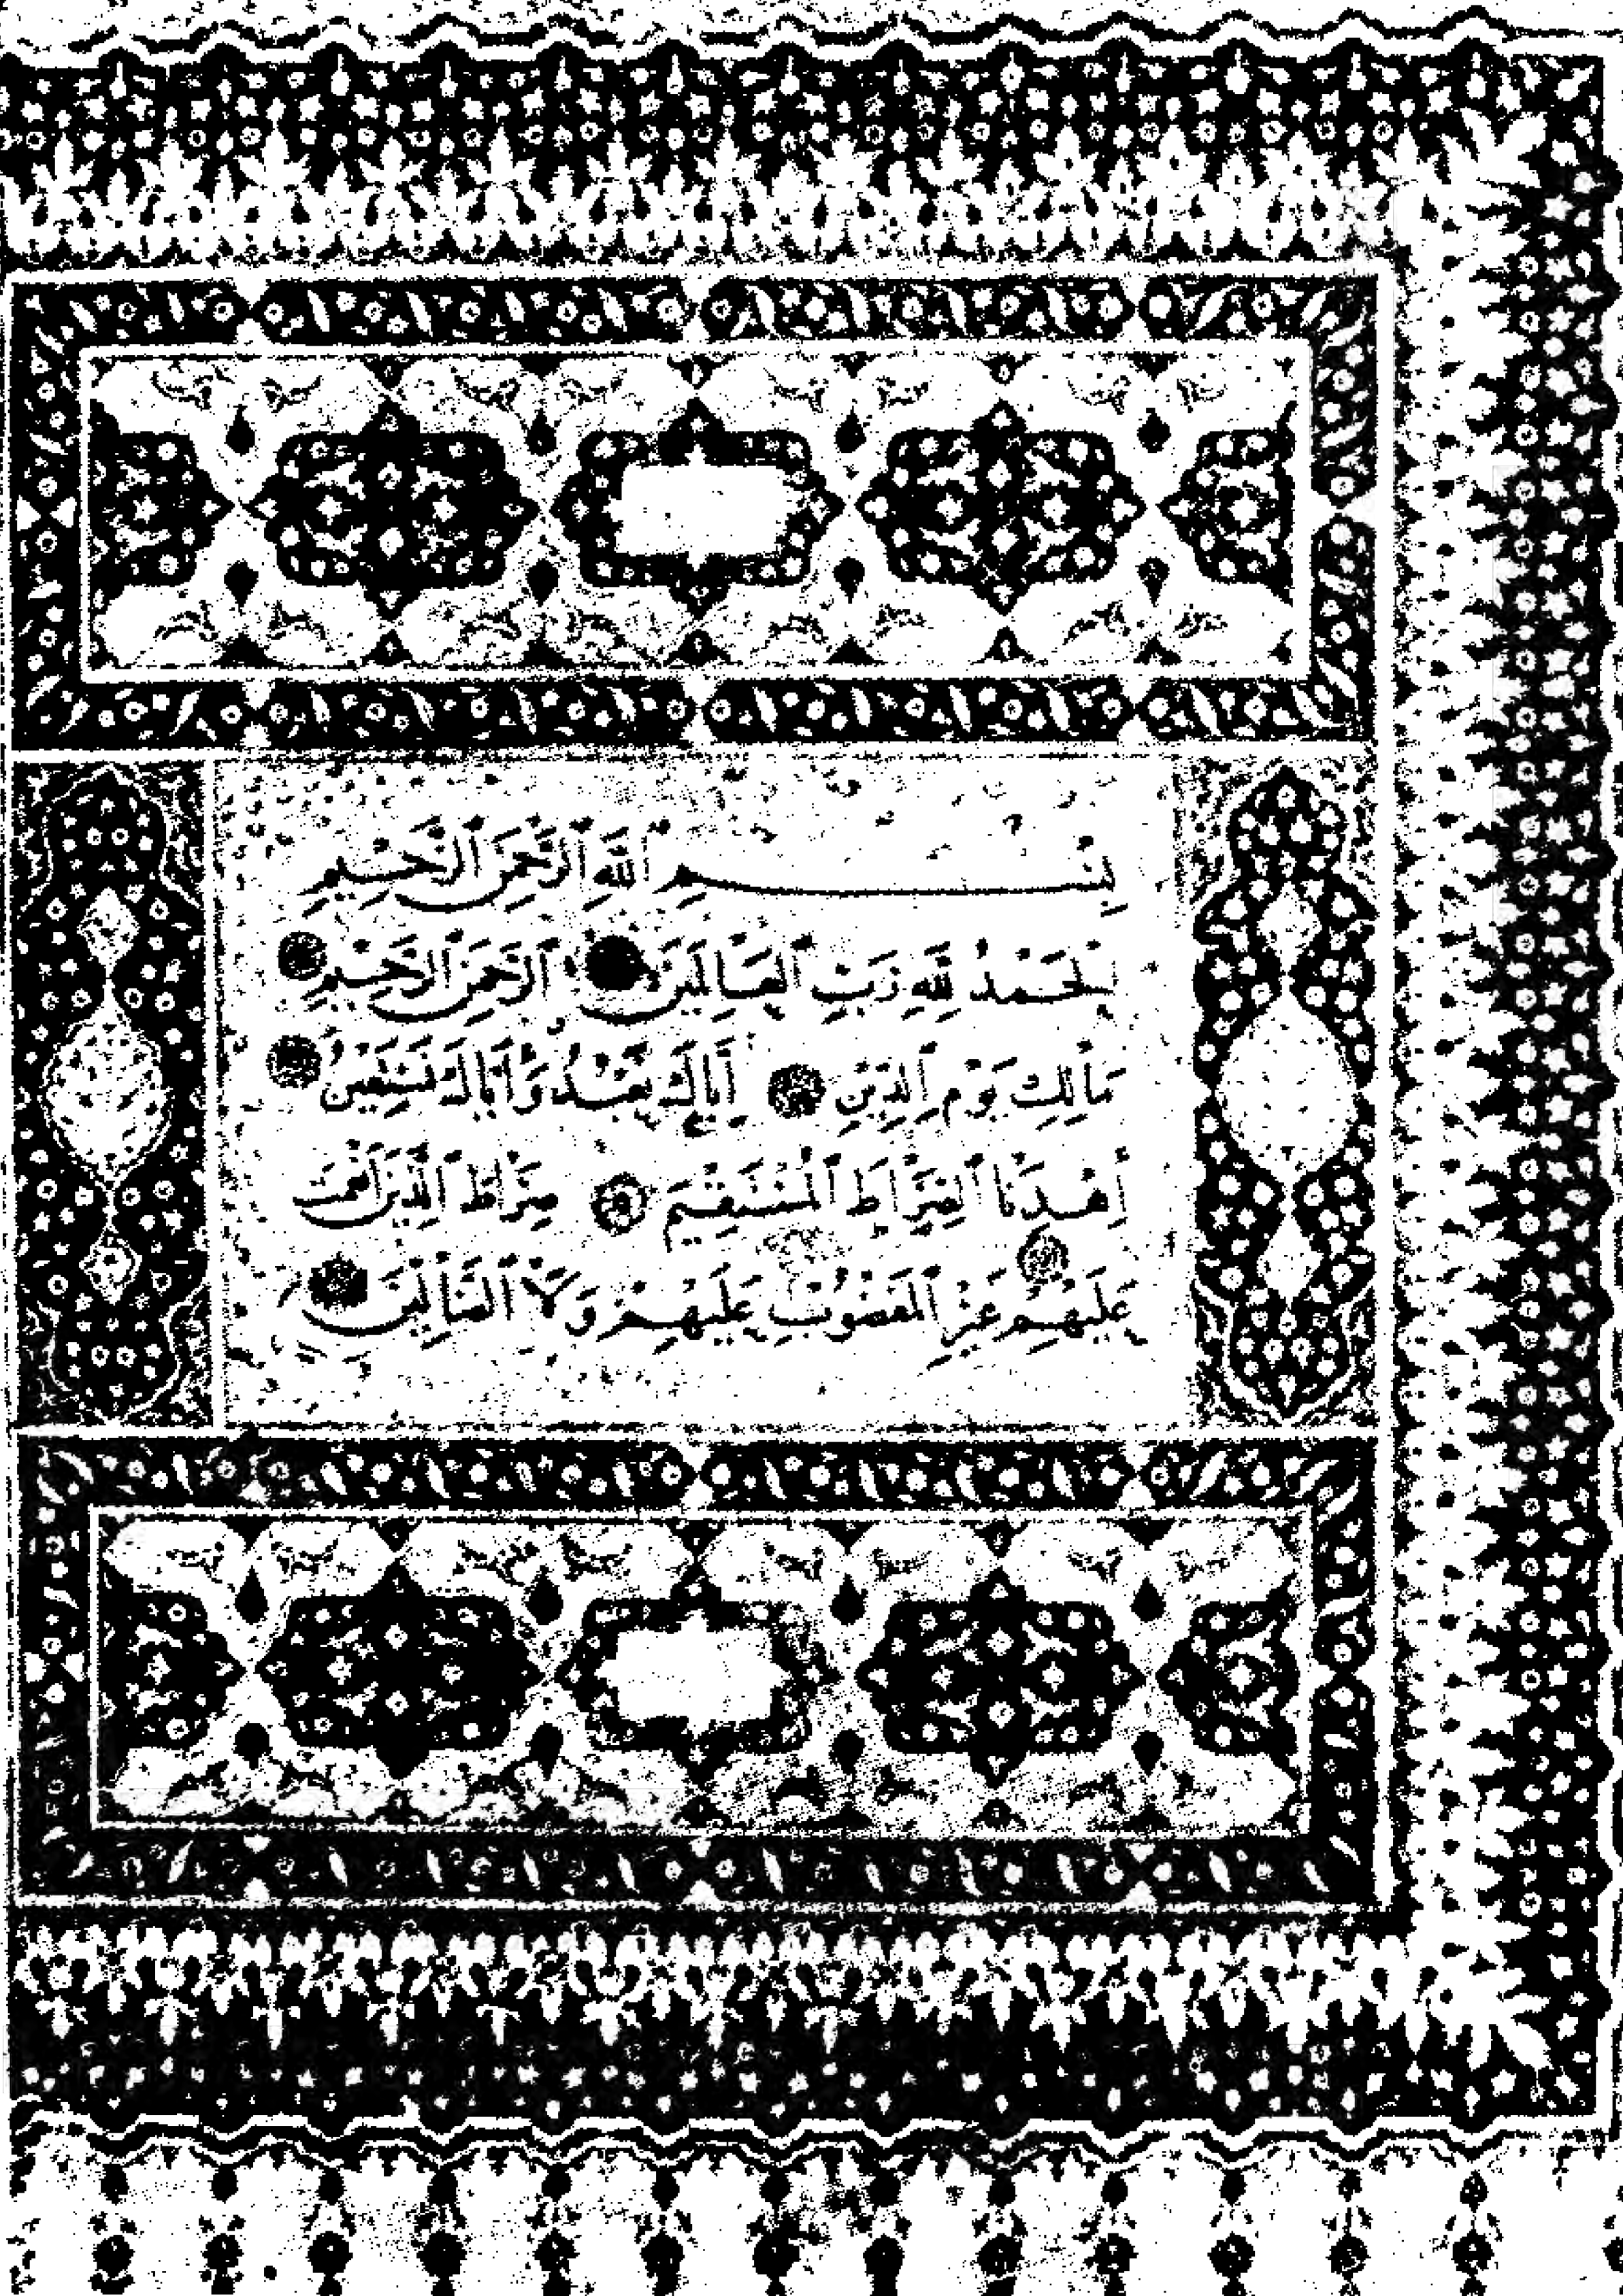 بِسْمِ اللَّهِ الرَّحْمَنِ الرَّحِيمِ
اَلْحَمْدُ لِلَّهِ رَبِّ الْعَالَمِينَ الرَّحْمَنِ الرَّحِيمِ
مَالِكِ يَوْمِ الدِّينِ إِيَّاكَ نَعْبُدُ وَإِيَّاكَ نَسْتَعِينُ
اِهْدِنَا الصِّرَاطَ الْمُسْتَقِيمَ صِرَاطَ الَّذِينَ أَنْعَمْتَ
عَلَيْهِمْ غَيْرِ الْمَغْضُوبِ عَلَيْهِمْ وَلَا الضَّالِّينَ